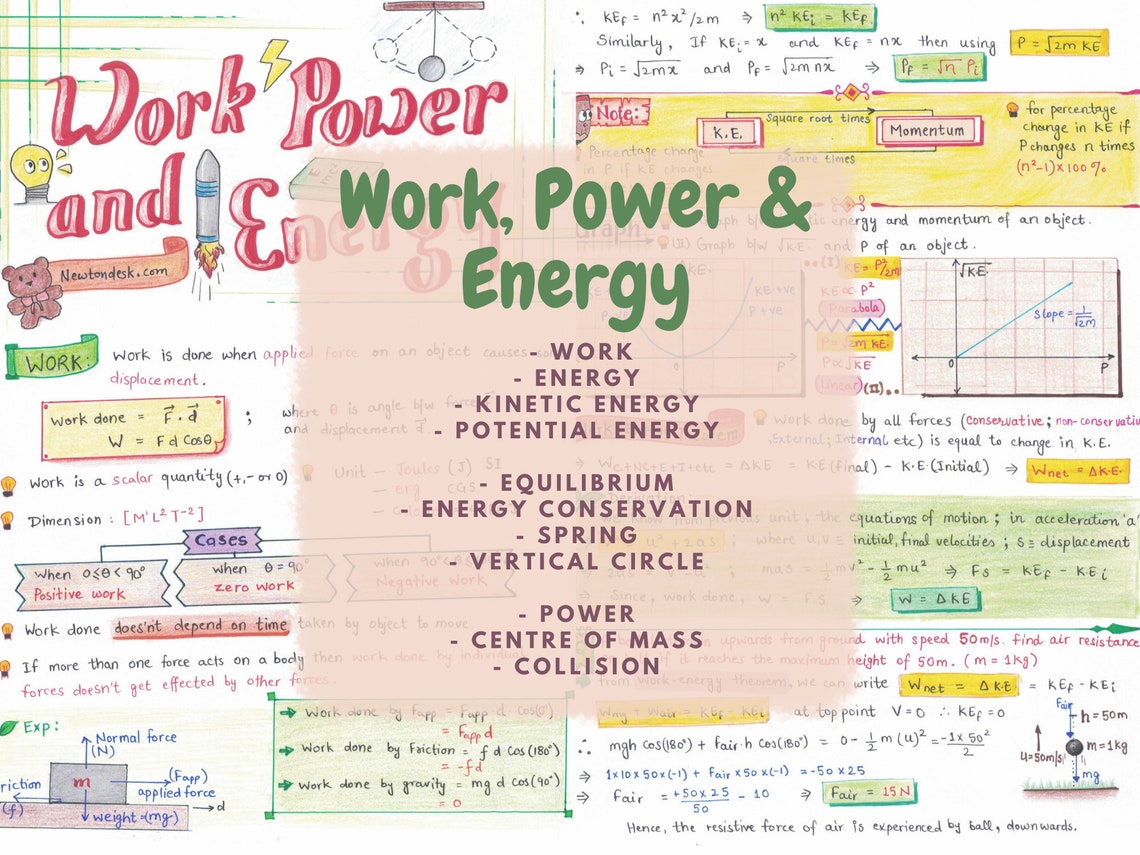 Work Power
and Energy
Newtondesk.com
Work, Power &
Energy
- WORK
- ENERGY
- KINETIC ENERGY
- POTENTIAL ENERGY
- EQUILIBRIUM
- ENERGY CONSERVATION
- SPRING
- VERTICAL CIRCLE
- POWER
- CENTRE OF MASS
- COLLISION
WORK:
Work is done when applied force on an object causes
displacement.
Work done = F⃗ . d⃗
W = F d Cosθ
;
where θ is angle b/w force
and displacement d⃗.
Work is a scalar quantity (+, - or 0)
Unit - Joules (J) SI
- erg CGS
Dimension : [M¹L²T⁻²]
Cases
When 0≤θ<90°
Positive work
when θ = 90°
zero work
when 90°
Negative Work
Work done does'nt depend on time taken by object to move.
If more than one force acts on a body then work done by individual
forces doesn't get effected by other forces.
Exp:
Normal force
(N)
m
(Fapp)
applied force
riction
(f)
d
weight=(mg)
Work done by fapp = Fapp d. Cos(0°)
= Fapp d
Work done by Friction = f d cos(180°)
= -fd
Work done by gravity = mg d cos(90°)
= 0
∴ KEf = n²x²/2m ⇒ n² KEi = KEf.
Similarly, If KEi = x and KEf = nx then using P = √2m KE
⇒ Pi = √2mx and Pf = √2m nx ⇒ Pf = √n Pi
Note:
K.E.
Square root times
Momentum
square times
Percentage change
in P if KE changes
for percentage
change in KE if
P changes n times
(n²-1)×100%
Graph
Graph b/w kinetic energy and momentum of an object.
(II) Graph b/w √K.E. and P of an object.
..(I)
KE = P²/2m
KE ∝ P²
Parabola
P = √2m KE
P ∝ √KE
(Linear) (II)..
KE +ve
P +ve
√K.E.
Slope = 1/√2m
0
P
Work done by all forces (Conservative; non-conservativ
,External; Internal etc) is equal to change in K.E.
⇒ WC+NC+E+I+etc = ΔKE = KE(final) - K.E.(Initial) ⇒ Wnet = ΔK.E.
Derivation:
We know from previous unit, the equations of motion; in acceleration 'a'
u² + 2as ; where u,v ≡ initial, final velocities ; S ≡ displacement
⇒ 2as = ; mas = ½mv² - ½mu² ⇒ FS = KEf - KEi
⇒ Since, work done, W = F.S ⇒ W = ΔKE
upwards from ground with speed 50m/s. find air resistance
if it reaches the maximum height of 50m. (m = 1kg)
from work-energy theorem, we can write Wnet = ΔK.E = KEf - KEi
Wmg + Wair = KEf - KEi at top point V=0 ∴ KEf = 0
∴ mgh cos(180°) + Fair.h cos(180°) = 0 - ½ m (u)² = -1×50²/2
⇒ 1×10×50×(-1) + Fair×50×(-1) = -50×25
⇒ Fair = +50×25/50 - 10 ⇒ Fair = 15N
Hence, the resistive force of air is experienced by ball, downwards.
Fair
h = 50m
m=1kg
u=50m/s
mg